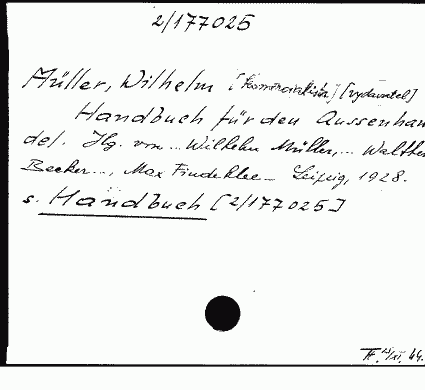 2/177025
Müller, Wilhelm [komercialista] [vydavatel]
Handbuch für den Aussenhan
del. Hg. von ... Wilhelm Müller, ... Walther
Becker ..., Max Findeklee – Leipzig, 1928.
s. Handbuch [2/177025]